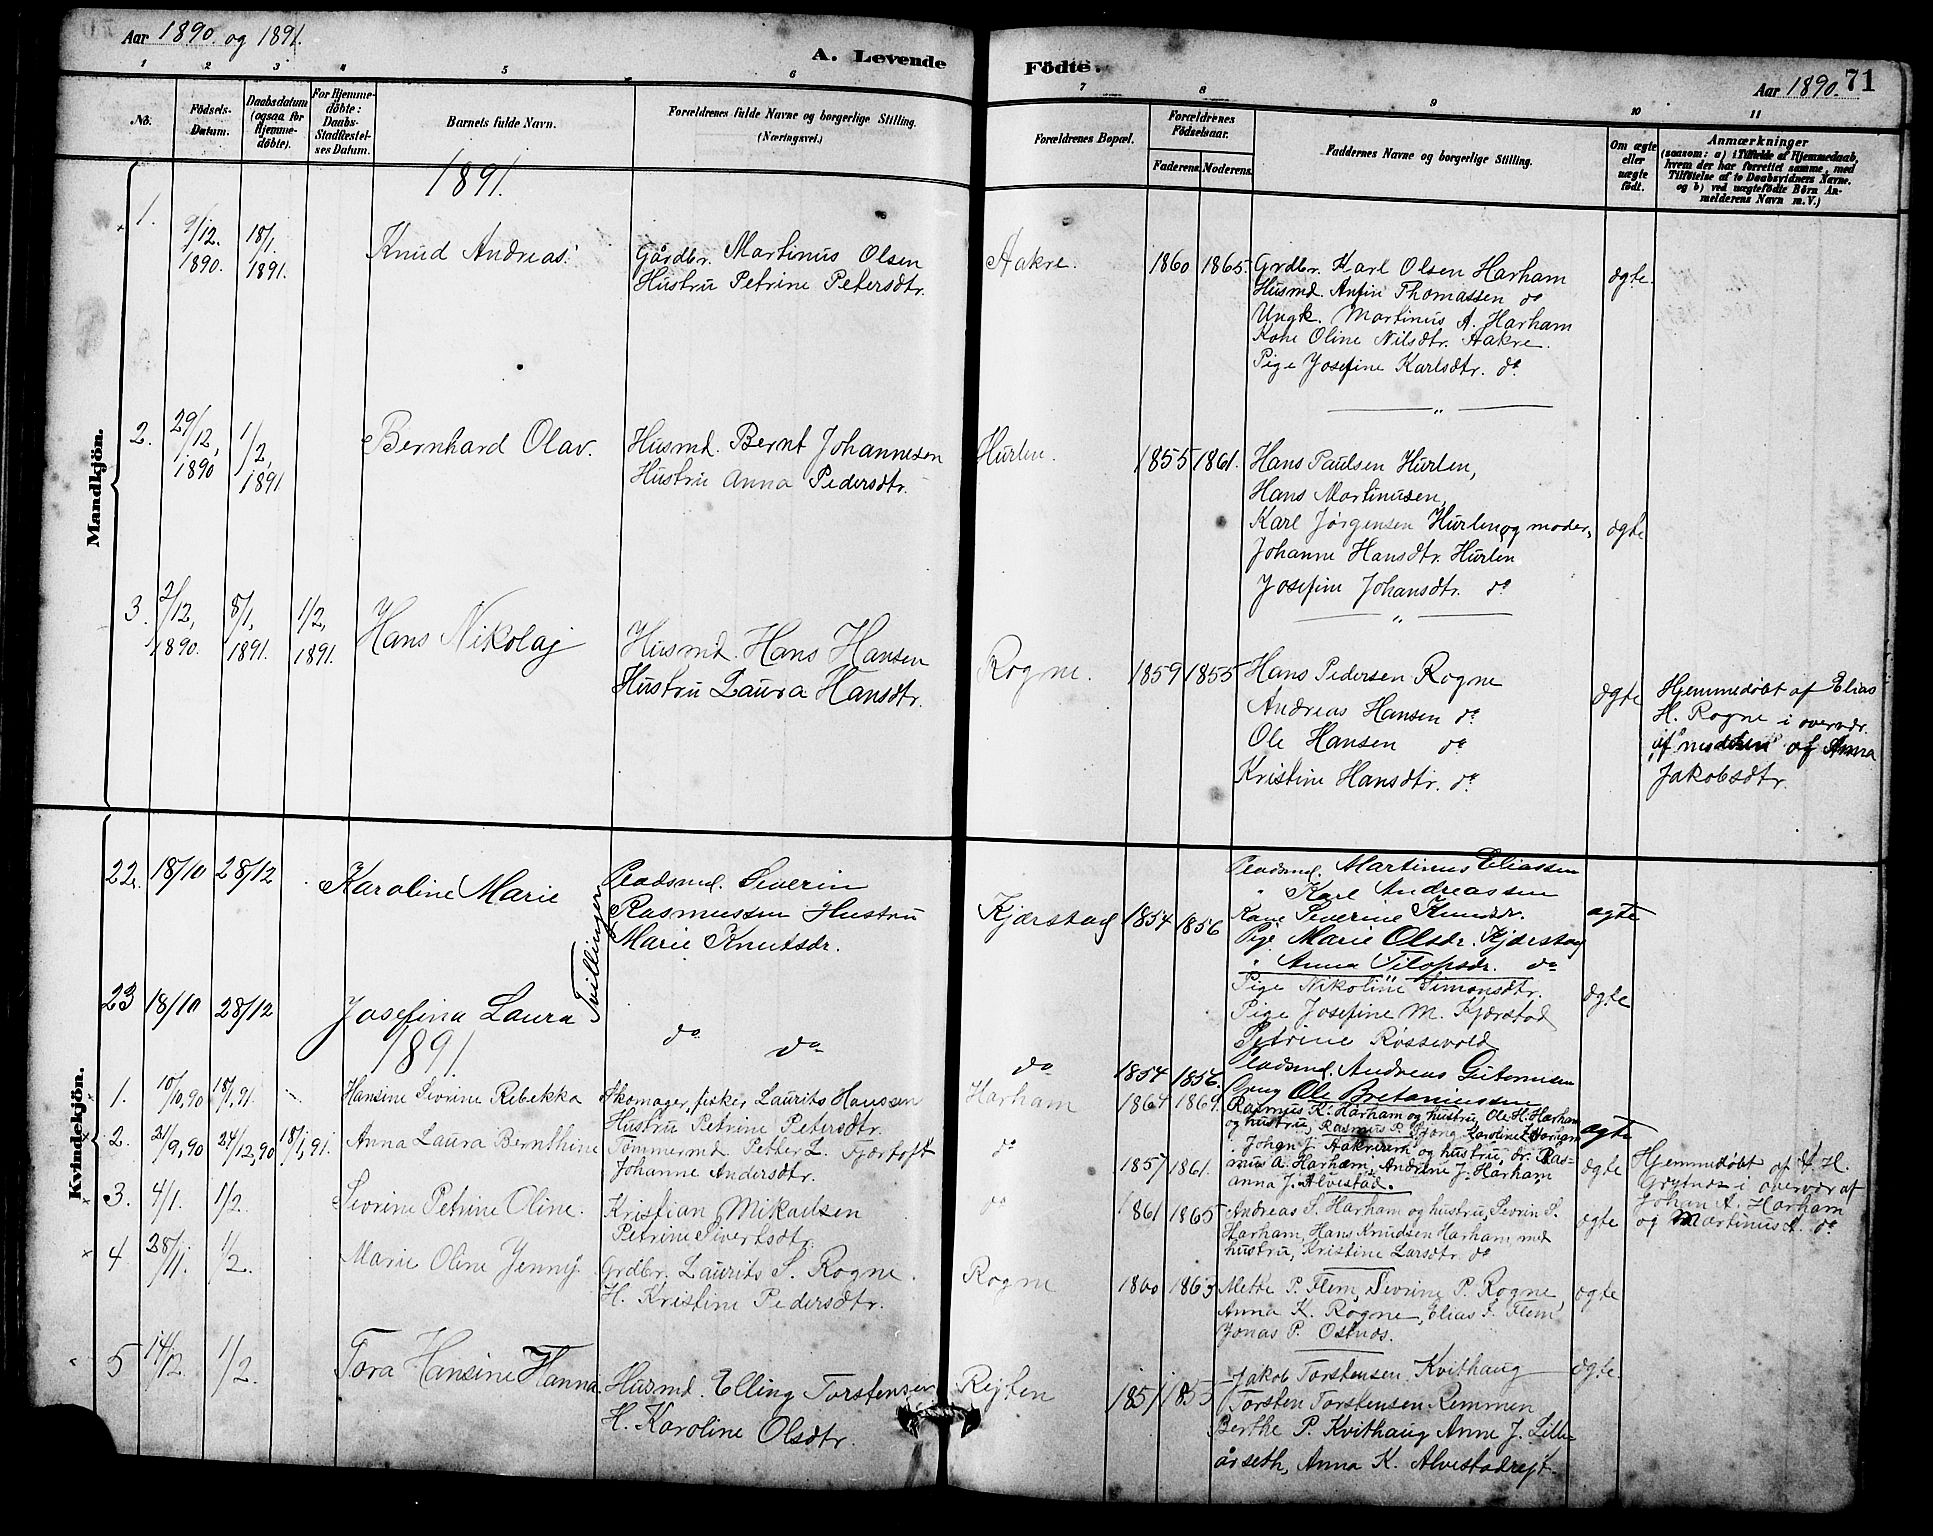 Aar 1890. og 1891.
A. Levende Födte.
Aar 1890. 71
1 2 3 4 5 6 7 8 9 10 11
No.
Födsels-Datum.
Daabsdatum (ogsaa for Hjemmedöbte).
For Hjemmedöbte: Daabs-Stadfæstelses Datum.
Barnets fulde Navn.
Forældrenes fulde Navne og borgerlige Stilling.
(Næringsvei.)
Forældrenes Bopæl.
Forældrenes Födselsaar.
Faderens. Moderens.
Faddernes Navne og borgerlige Stilling.
Om ægte eller uægte födt.
Anmærkninger
(saasom: a) i Tilfælde af Hjemmedaab, hvem der har forrettet samme, med Tilföielse af to Daabsvidners Navne, og b) ved uægtefödte Börn Anmelderens Navn m. V.)
Mandkjön.
1891.
1. 9/12. 1890. 18/1. 1891. Knud Andreas.
Gårdbr. Martinus Olsen
Hustru Petrine Petersdtr.
Aakre. 1860 1865.
Grdbr. Karl Olsen Harham
Husmd. Anfin Thomassen do
Ungk. Martinus A. Harham
Kone Oline Nilsdtr. Aakre.
Pige Josefine Karlsdtr. do.
ægte.
2. 29/12, 1890 1/2, 1891 Bernhard Olav.
Husmd. Bernt Johannesen
Hustru Anna Pedersdtr.
Hurlen. 1855 1861.
Hans Paulsen Hurlen,
Hans Martinusen,
Karl Jørgensen Hurlen og moder,
Johanne Hansdtr. Hurlen
Josefine Johansdtr. do
ægte
3. 2/12, 1890. 8/1, 1891. 1/2, 1891. Hans Nikolaj
Husmd. Hans Hansen
Hustru Laura Hansdtr.
Rogne. 1859 1855
Hans Pedersen Rogne
Andreas Hansen do
Ole Hansen do
Kristine Hansdtr. do
ægte
Hjemmedøbt af Elias
H. Rogne i overvær.
af og Anna
Jakobsdtr.
Kvindekjön.
22. 18/10 28/12 Karoline Marie
Tvillinger
Pladsmd. Severin
Rasmussen Hustru
Marie Knutsdr.
Kjærstad 1854 1856
Pladsmd. Martinus Eliassen
" Karl Andreassen
Kone Severine Knutsdr.
Pige Marie Olsdr. Kjærstad
" Anna Filopsdr. do
ægte
23 18/10 28/12 Josefina Laura
do do
do 1854 1856.
Pige Nikoline Simonsdtr.
Pige Josefine M. Kjærstad
Petrine Røssevold
Pladsmd. Andreas
Ole
ægte
1891.
1. 10/10,90 18/1,91. Hansine Sevrine Rebekka
Skomager, fisker Laurits Hansen
Hustru Petrine Petersdtr.
Harham 1864 1869.
Rasmus K. Harham og hustru, Ole H. Harham
og hustru, Rasmus P. Karoline L. Harham
ægte
2. 21/9,90 24/12,90 18/1,91. Anna Laura Bernthine
Tømmermd. Petter L. Fjærtoft
Johanne Andersdtr.
do 1857 1861.
Johan J. og hustru, Ras-
mus A. Harham, Andrine J. Harham
Anna J. Alvestad.
ægte
Hjemmedøbt af A. H.
i overvær af
Johan A. Harham
og Martinus A. do
3. 4/1. 1/2. Sevrine Petrine Oline.
Kristian Mikalsen
Petrine Sivertsdtr.
do 1861 1865
Andreas S. Harham og hustru, Sevrin S.
Harham, Hans Knudsen Harham med
hustru, Kristine Larsdtr do
ægte
4 28/11. 1/2. Marie Oline Jenny.
Grdbr. Laurits S. Rogne.
H. Kristine Pedersdtr.
Rogne 1860 1863
Mette P. Flem, Sevrine P. Rogne
Anna K. Rogne, Elias Flem
Jonas P. Østnes.
ægte
5 14/12. 1/2. Tora Hansine Hanna
Husmd. Elling Torstensen
H. Karoline Olsdtr.
Rejten 1851 1855
Jakob Torstensen Kvithaug
Torsten Torstensen Remmen
Berthe P. Kvithaug Anne J. Lille-
årseth, Anna K. Alvestadrejt
ægte